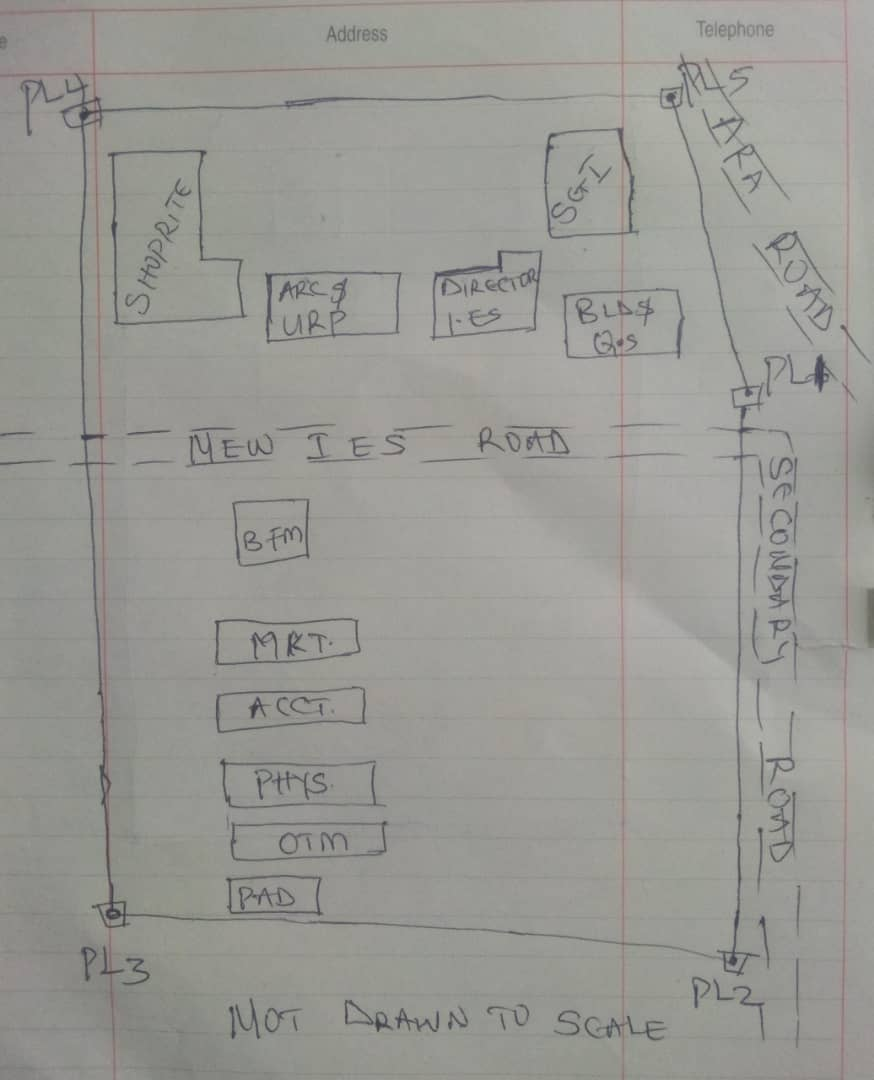 Address
Telephone
PL4
PL5
ARA ROAD
SHOPRITE
SGI
ARC $
URP
DIRECTOR
I.ES
BLD $
Q.s
PL1
NEW IES ROAD
SECONDARY ROAD
BFM
MRT.
ACCT.
PHYS.
OTM
PAD
PL3
PL2
NOT DRAWN TO SCALE